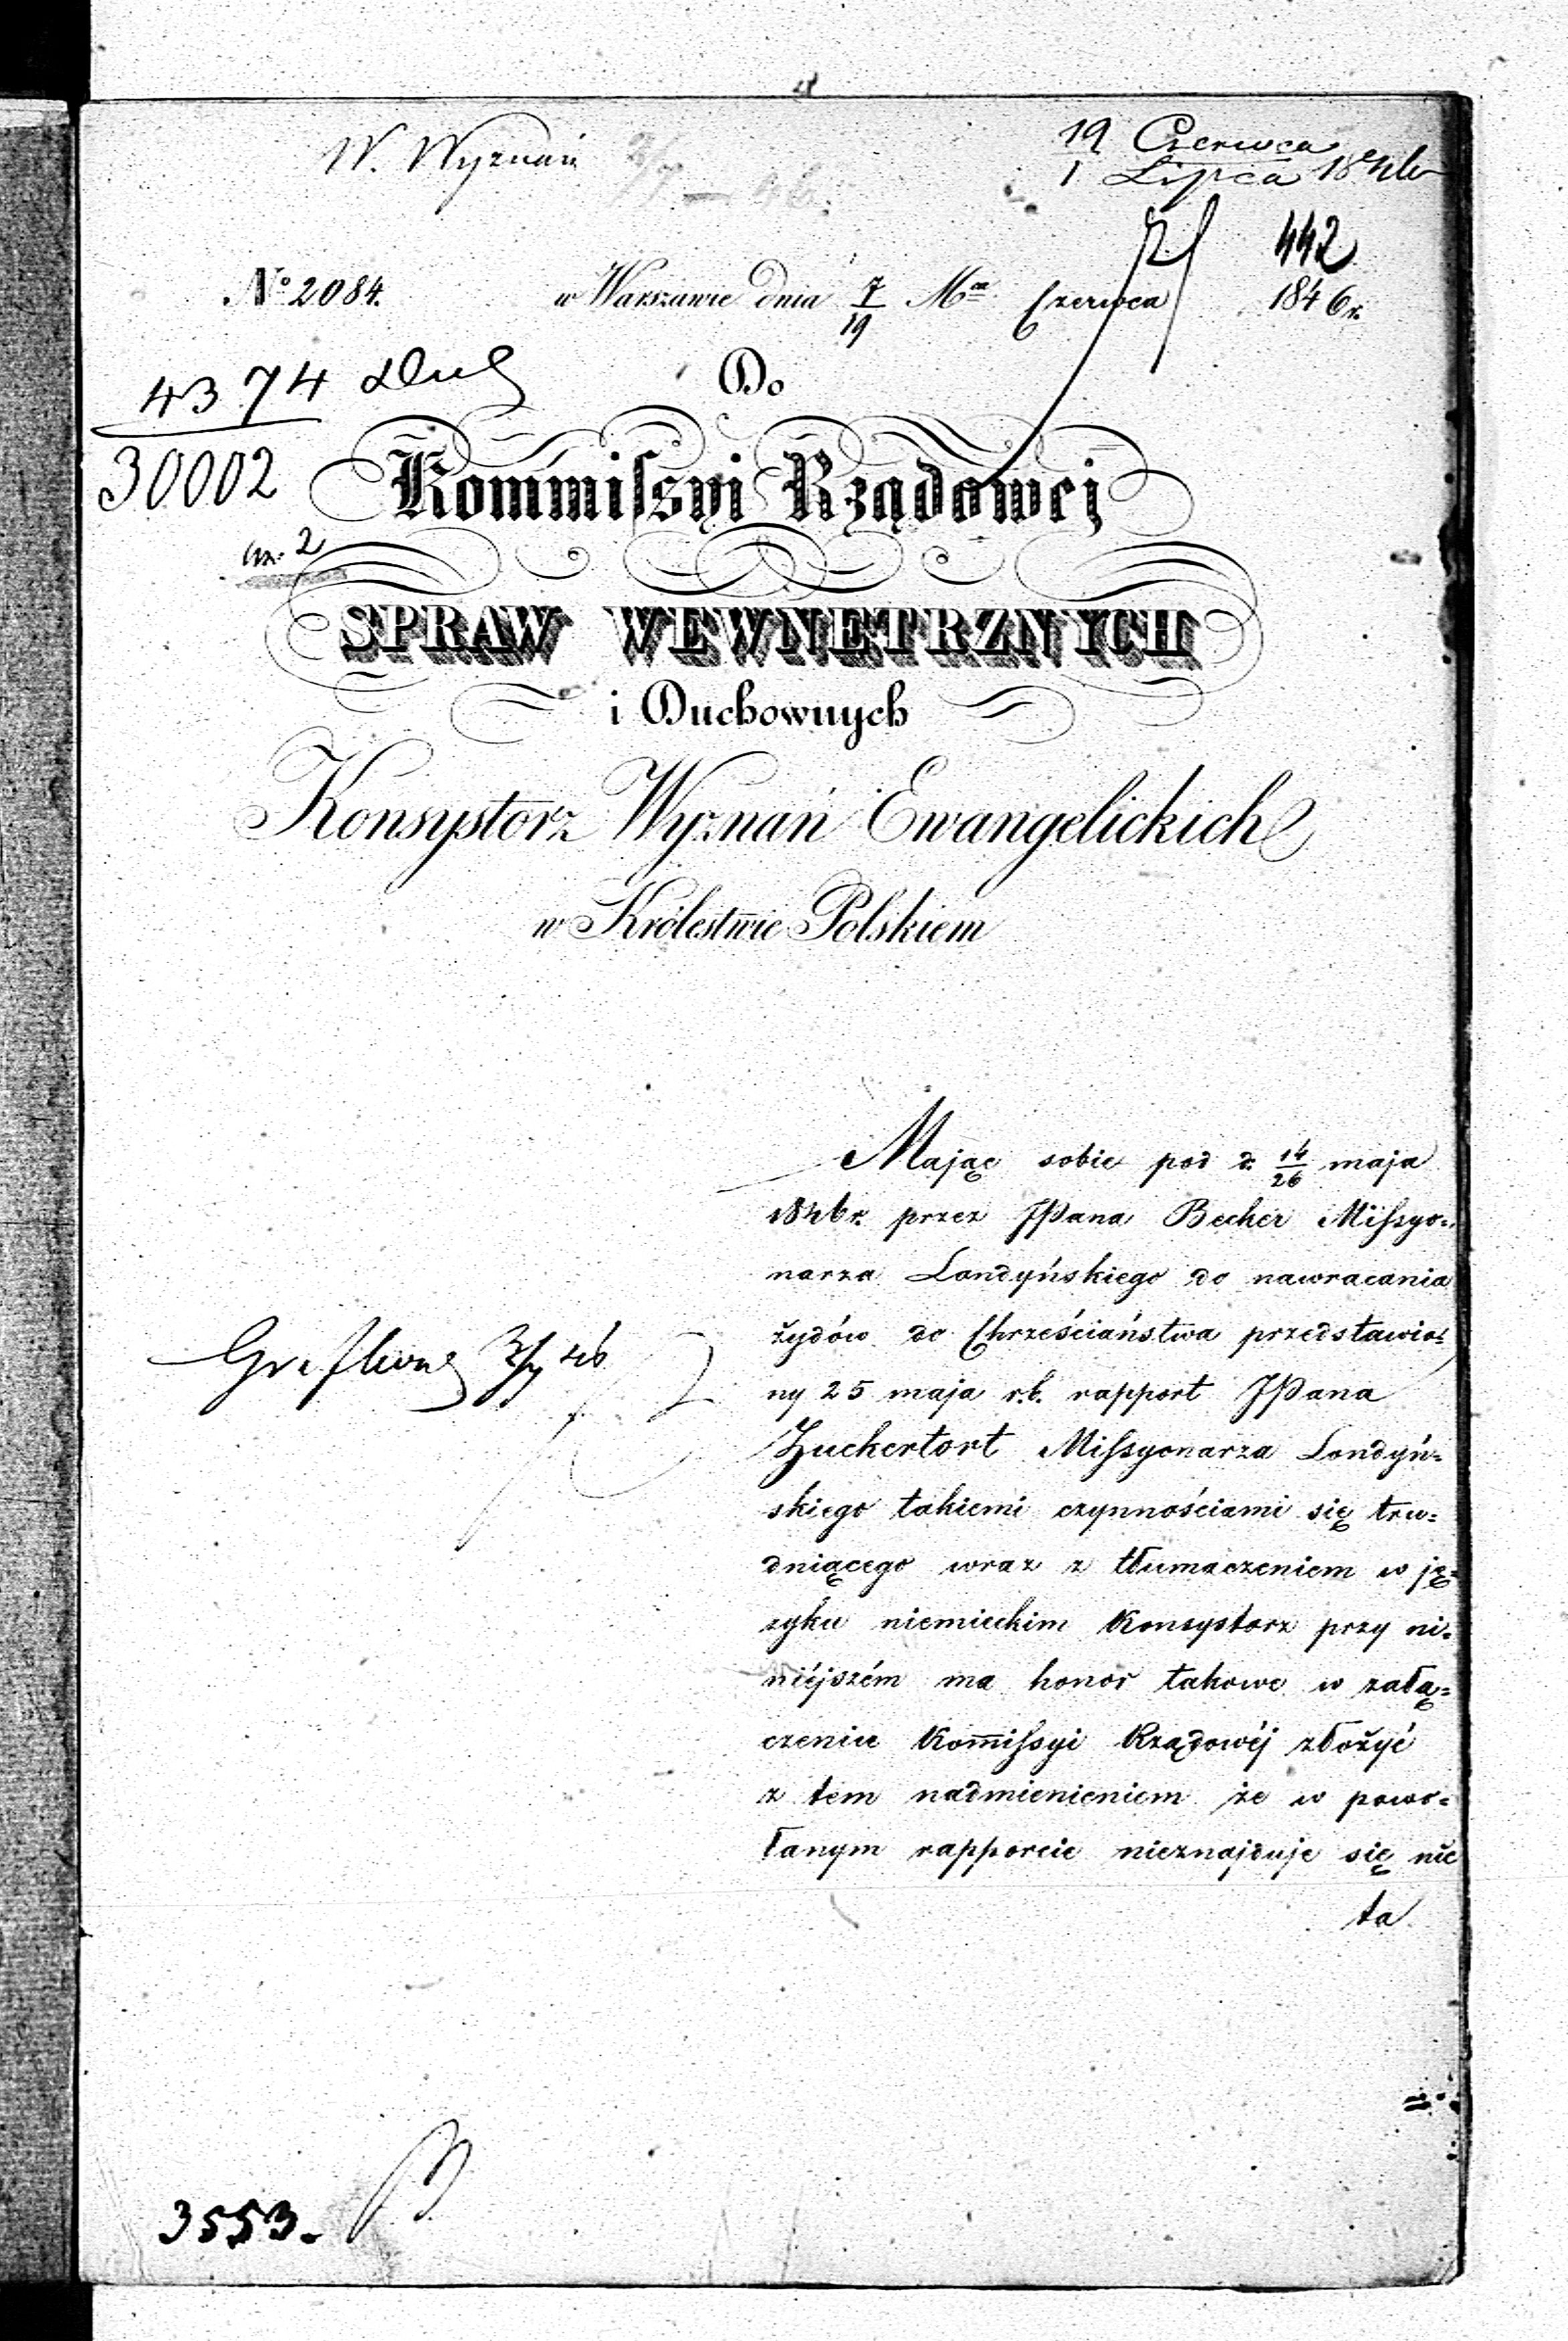 W. Wyznań
19 Czerwca
1 Lipca 1846
442
№ 2084. w Warszawie dnia 7/19 Mca Czerwca 1846 r.
4374
30002
Do
Kommiſsyi Rządowej
SPRAW WEWNĘTRZNYCH
i Duchownych
Konsystorz Wyznań Ewangelickich
w Królestwie Polskiem
Mając sobie pod d. 14/26 maja
1846 r. przez JPana Becher Miſsyo=
narza Londyńskiego do nawracania
żydów do Chrześciaństwa przedstawio=
ny 25 maja r.b. rapport JPana
Zuckertort Miſsyonarza Londyń=
skiego takiemi czynnościami się tru=
dniącego wraz z tłumaczeniem w ję=
zyku niemieckim Konsystorz przy ni=
niéjszém ma honor takowe w załą=
czeniu Kom̄iſsyi Rządowéj złożyć
z tem nadmienieniem że w powo=
łanym rapporcie nieznajduje się nic
ta
3553.